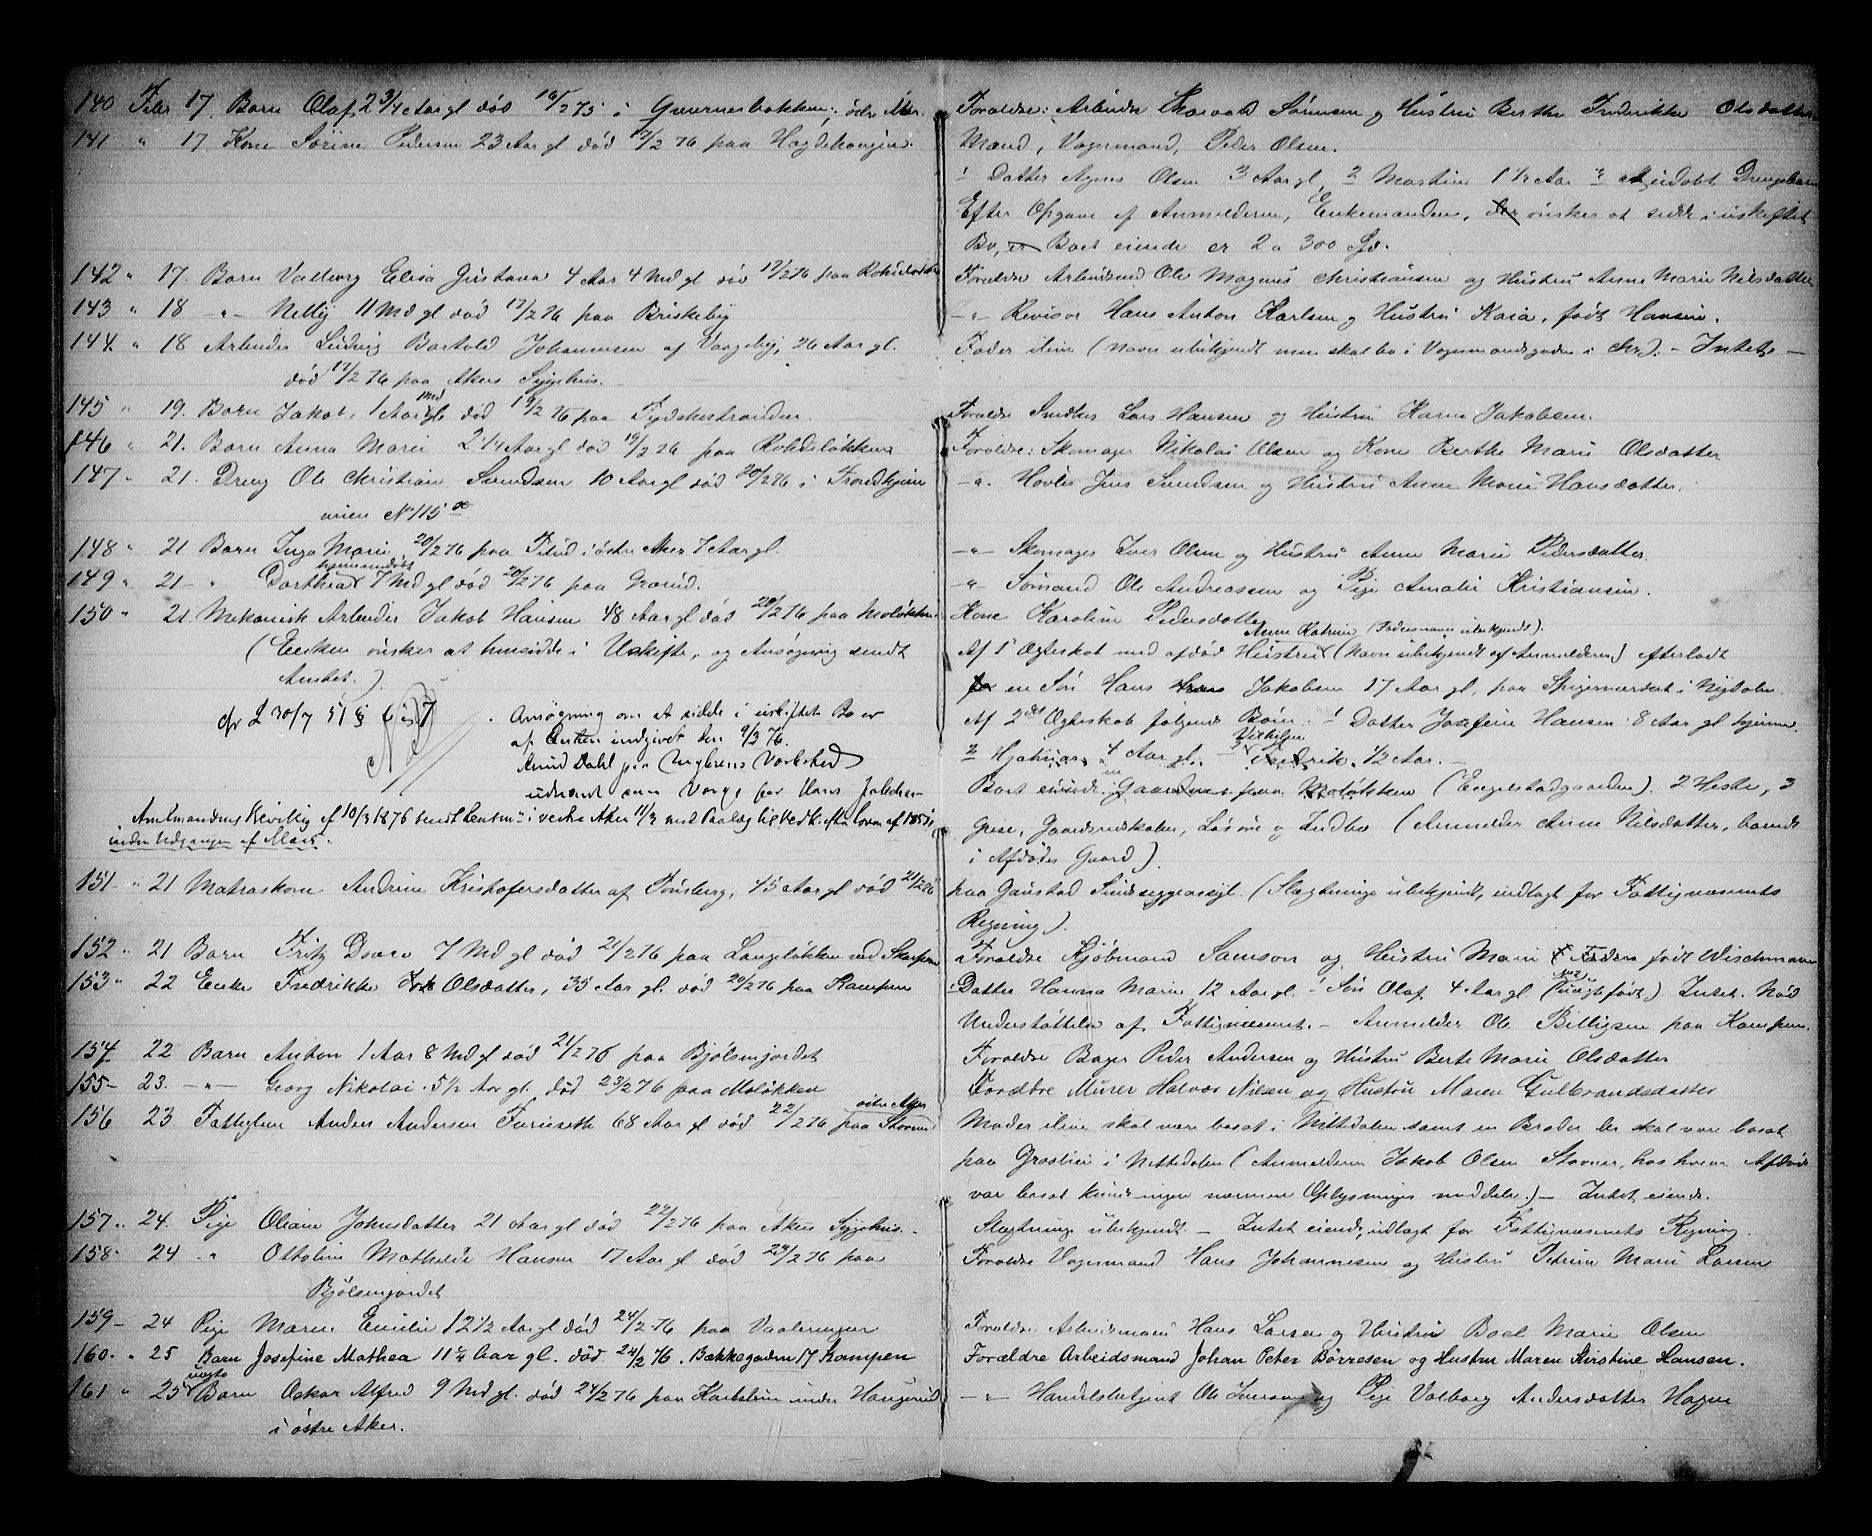 140 Febr 17. Barn Olaf 2 3/4 Aar gl død 16/2 75 i Grævnerbakken; østre Aker.
Forældre: Arbeider Thorvald Sørensen og Hustru Berthe Fredrikke Olsdatter
141 " 17 Kone Sorine Pedersen 23 Aar gl død 17/2 76 paa Hagdehaugen.
Mand, Vognmand, Peder Olsen.
1 Datter Agnes Olsen 3 Aar gl, 2 Martin 1 1/2 Aar 3 et udøbt Drengebarn
Efter Opgave af Anmelderen, Enkemanden, der ønsker at sidde i uskiftet
Bo, er Boet eiende er 2 a 300 Spd.
142 " 17. Barn Valborg Elisa Gustava 4 Aar 4 Md gl død 17/2 76 paa Rodeløkken
Forældre Arbeidsmd Ole Magnus Christiansen og Hustru Anne Marie Nilsdatter
143 " 18 -"- Nelly 11 Md gl død 17/2 76 paa Briskeby
-"- Revisor Hans Anton Karlsen og Hustru Kaia, født Hansen.
144 " 18 Arbeider Ludvig Bartold Johannesen af Vaageby, 26 Aar gl.
død 17/2 76 paa Akers Sygehus.
Fader ilive (Navn ubekjendt men skal bo i Vognmandsgaden i Chr.). - Intet -
145 " 19. Barn Jakob, 1 Md gl død 19/2 76 paa Tydskestranden.
Forældre Snedker Lars Hansen og Hustru Karen Jakobsen.
146 " 21. Barn Anna Marie 2 1/4 Aar gl død 19/2 76 paa Rodeløkken
Forældre: Skomager Nikolai Olsen og Kone Berthe Marie Olsdatter
147 " 21. Dreng Ole Christian Svendsen 10 Aar gl død 20/2 76 i Trondhjem
veien No 115 a
-"- Høvler Jens Svendsen og Hustru Anne Marie Hansdatter.
148 " 21 Barn Inga Marie 20/2 76 paa i østre Aker 7 Aar gl.
-"- Skomager Iver Olsen og Hustru Anne Marie Pedersdatter.
149 " 21 - " Dorthea hjemmedøbt 7 Md gl død 20/2 76 paa Grorud.
-"- Sømand Ole Andreassen og Pige Amalie Kristiansen.
150 " 21. Mekanisk Arbeider Jakob Hansen 48 Aar gl død 20/2 76 paa Moløkken
Kone Karoline Pedersdatter
(Enken ønsker at hensidde i Uskifte, og Ansøgning sendt
Amtet.)
Anne Katrine (Fadersnavn ubekjendt).
Af 1 Ægteskab med afdød Hustru (Navn ubekjendt af Anmelderen) efterladt
en Søn Hans Jakobsen 17 Aar gl, paa Spigerværket i Nydalen.
cfr L 30/7 51 § 6 & 7
Ansøgning om at sidde i uskiftet Bo er
af Enken indgivet den 9/3 76.
Knud Dahl paa (Myhrens Værksted)
udnævnt som Værge for Hans Jakobsen
Af 2det Ægteskab følgende Børn: 1 Datter Josefine Hansen 8 Aar gl hjemme
2 Hjalmar 4 Aar gl. 3 Vilhelm Fredrik 1/2 Aar. -
Boet eiende: Gaard paa Moløkken (Engelstadgaarden). 2 Heste, 3
Grise, Gaardsredskaber, Løsøre og Indbo (Anmelder Anne Nilsdatter, boende
i Afdødes Gaard).
Amtmandens Bevilling af 10/3 1876 sendt Lensm: i vestre Aker 11/3 med Paalæg
inden Udgangen af Marts.
151 " 21 Matroskone Andrine Kristofersdatter af Tønsberg, 45 Aar gl død 21/2 76
paa Gaustad Sindssygeasyl. (Slægtninge ubekjendt, indlagt for Fattigvæsenets
Regning).
152 " 21 Barn Fritz Dværo 7 Md gl død 21/2 76 paa Langeløkken ved Skarpsno
Forældre Kjøbmand Samson og Hustru Marie født Wischmann
153 " 22 Enke Fredrikke Olsdatter, 35 Aar gl. død 20/2 76 paa Kampen
1 Datter Hanna Marie 12 Aar gl. 1 Søn Olaf 4 Aar gl. (uægtefødt). Intet. Nød
Understøttelse af Fattigvæsenet. - Anmelder Ole Billigsen paa Kampen.
154 22 Barn Anton 1 Aar 8 Md gl død 21/2 76 paa Bjølsenjordet
Forældre Bager Peder Andersen og Hustru Berte Marie Olsdatter
155 - 23. -"- Georg Nikolai 5 1/2 Aar gl, død 23/2 76 paa Moløkken
Forældre Murer Halvor Nilsen og Hustru Maren Gulbrandsdatter
156 23 Fattiglem Anders Andersen Furuseth 68 Aar gl død 22/2 76 paa Stovner østre Aker
Moder ilive skal være bosat i Nittedalen samt en Broder der skal være bosat
paa i Nittedalen (Anmelderen Jakob Olsen Stovner, hos hvem Afdøde
var bosat kunde ingen nærmere Oplysninger meddele.) - Intet eiende.
157 " 24. Pige Oliane Johnsdatter 21 Aar gl død 22/2 76 paa Akers Sygehus.
Slægtninge ubekjendt. - Intet eiende, indlagt for Fattigvæsenets Regning.
158 - 24 " Ottoline Mathilde Hansen 17 Aar gl død 23/2 76 paa
Bjølsenjordet
Forældre Vognmand Hans Johannesen og Hustru Petrine Marie Larsen
159 - 24 Pige Maren Emilie 12 1/2 Aar gl død 24/2 76 paa Vaalerengen
Forældre Arbeidsmand Hans Larsen og Hustru Boel Marie Olsen
160 - " 25 Barn Josefine Mathea 11 1/4 Aar gl. død 24/2 76. Bækkegaden 17 Kampen
Forældre Arbeidsmand Johan Peter Børresen og Hustru Maren Kirstine Hansen.
161 " 25 uægte Barn Oskar Alfred 9 Md gl. død 24/2 76 paa under Haugerud
i østre Aker.
-"- Handelsbetjent Ole Iversen og Pige Valborg Andersdatter Hagen